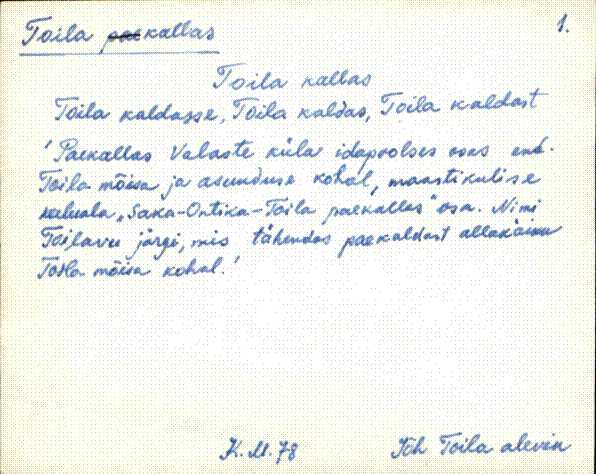 Toila paekallas 1.
Toila kallas
Toila kaldasse, Toila kaldas, Toila kaldast
'Paekallas Valaste küla idapoolses osas end.
Toila mõisa ja asunduse kohal, maastikulise
keeluala „Saka-Ontika-Toila paekallas" osa. Nimi
Toilavu järgi, mis tähendas paekaldast allakäiku
Toila mõisa kohal.'
K. M. 78 Jõh Toila alevik